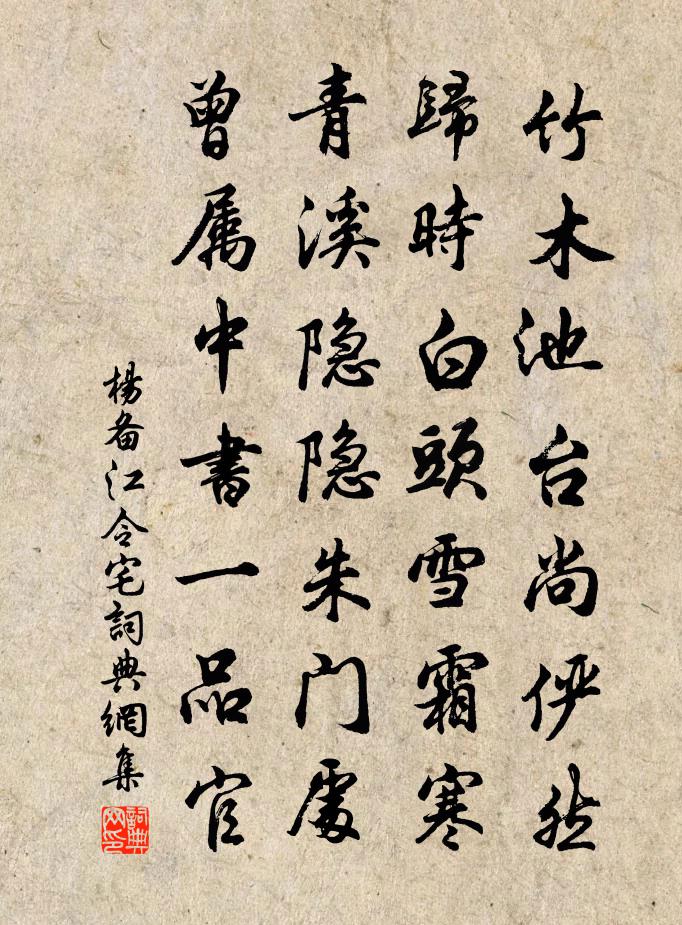 竹木池台尚俨然
歸時白頭雪霜寒
青溪隐隐朱门處
曾属中書一品官
楊备江令宅詞典網集
詞典网印